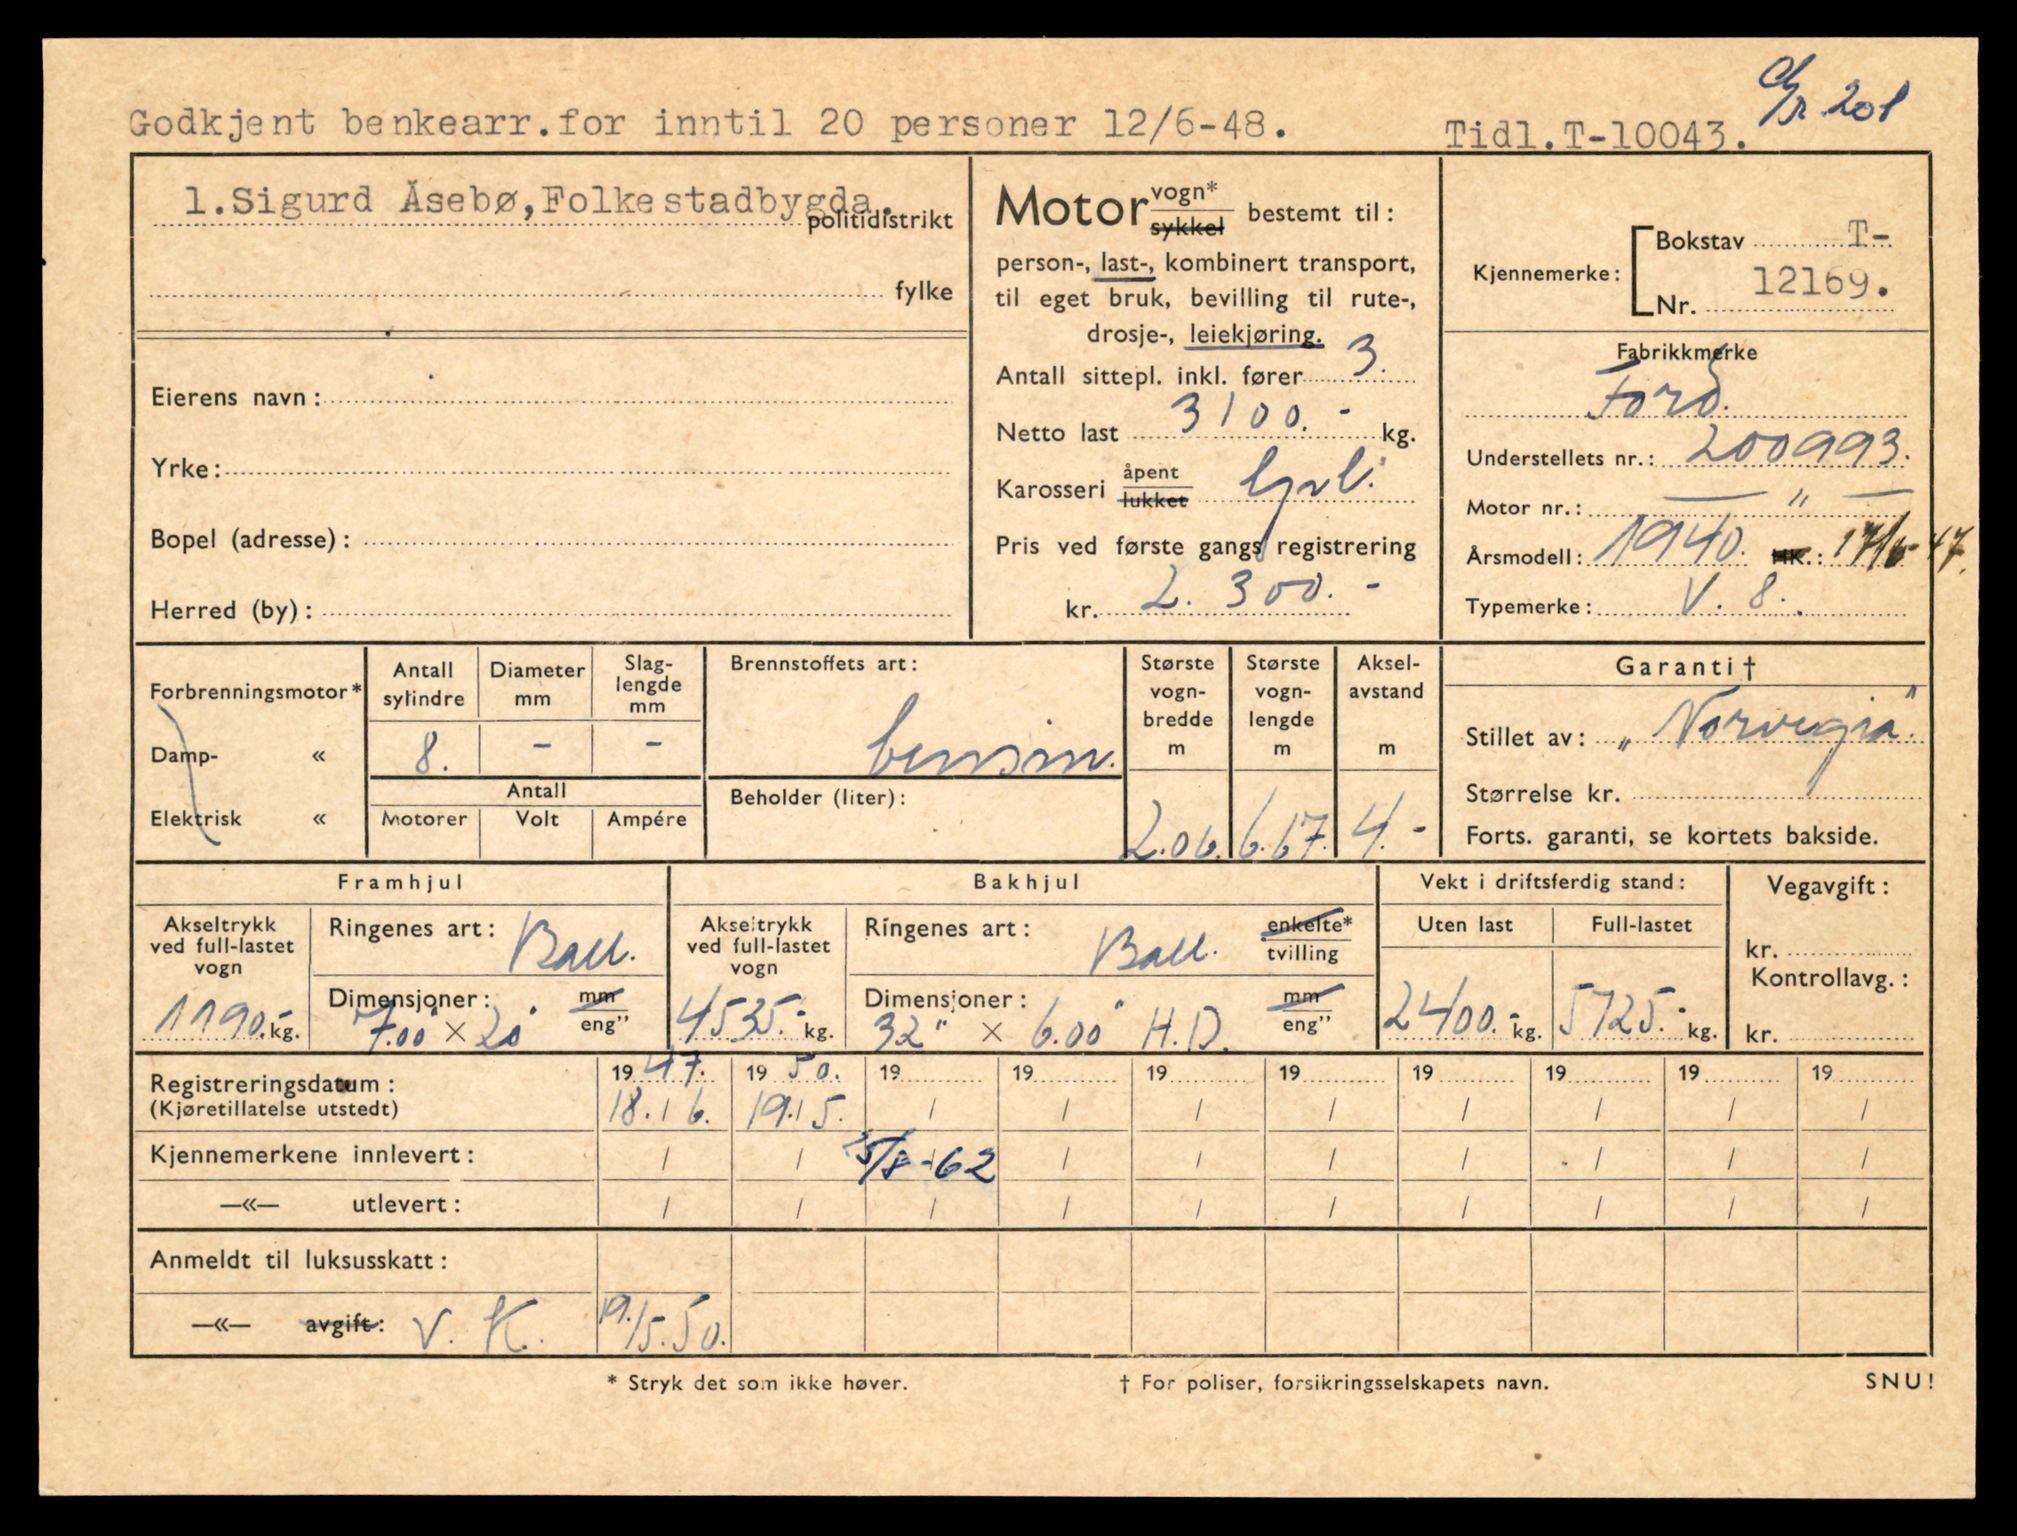 Godkjent benkearr.for inntil 20 personer 12/6-48.
Tidl.T-10043.
201
1.Sigurd Åsebø,Folkestadbygda.
politidistrikt
fylke
Eierens navn:
Yrke:
Bopel (adresse):
Herred (by):
Motor vogn* sykkel bestemt til:
person-, last-, kombinert transport,
til eget bruk, bevilling til rute-,
drosje-, leiekjøring.
Antall sittepl. inkl. fører 3.
Netto last 3100.- kg.
Karosseri åpent lukket
Pris ved første gangs registrering
kr. 2.300.-
Kjennemerke: Bokstav T-
Nr. 12169.
Fabrikkmerke
Ford.
Understellets nr.: 200993.
Motor nr.: — " —
Årsmodell: 1940. HK.: 17/6-47.
Typemerke: V.8.
Forbrenningsmotor*
Damp- «
Elektrisk «
Antall sylindre
Diameter mm
Slag-lengde mm
8. - -
Antall
Motorer Volt Ampére
Brennstoffets art:
bensin.
Beholder (liter):
Største vogn-bredde m
Største vogn-lengde m
Aksel-avstand m
2.06. 6.67. 4.-
Garanti †
Stillet av: „Norvegia".
Størrelse kr.
Forts. garanti, se kortets bakside.
Framhjul
Akseltrykk ved full-lastet vogn
1190.- kg.
Ringenes art: Ball.
Dimensjoner: mm eng"
7.00" × 20"
Bakhjul
Akseltrykk ved full-lastet vogn
4535.- kg.
Ringenes art: Ball. enkelte* tvilling
Dimensjoner: mm eng"
32" × 6.00" H.D.
Vekt i driftsferdig stand:
Uten last Full-lastet
2400.- kg. 5725.- kg.
Vegavgift:
kr.
Kontrollavg.:
kr.
Registreringsdatum:
(Kjøretillatelse utstedt)
19 47. 19 50. 19 19 19 19 19 19 19 19
18. / 6. 19. / 5. / / / / / / / /
Kjennemerkene innlevert: / / 15/8-62 / / / / / / /
—«— utlevert: / / / / / / / / / /
Anmeldt til luksusskatt:
—«— avgift: V. K. 19./5.50.
* Stryk det som ikke høver.
† For poliser, forsikringsselskapets navn.
SNU!